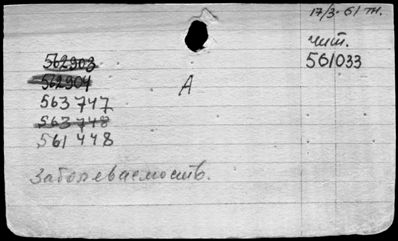 17/3-61 тн.
чит.
561033
562903
562904
563747
А
563748
561448
Заболеваемость.